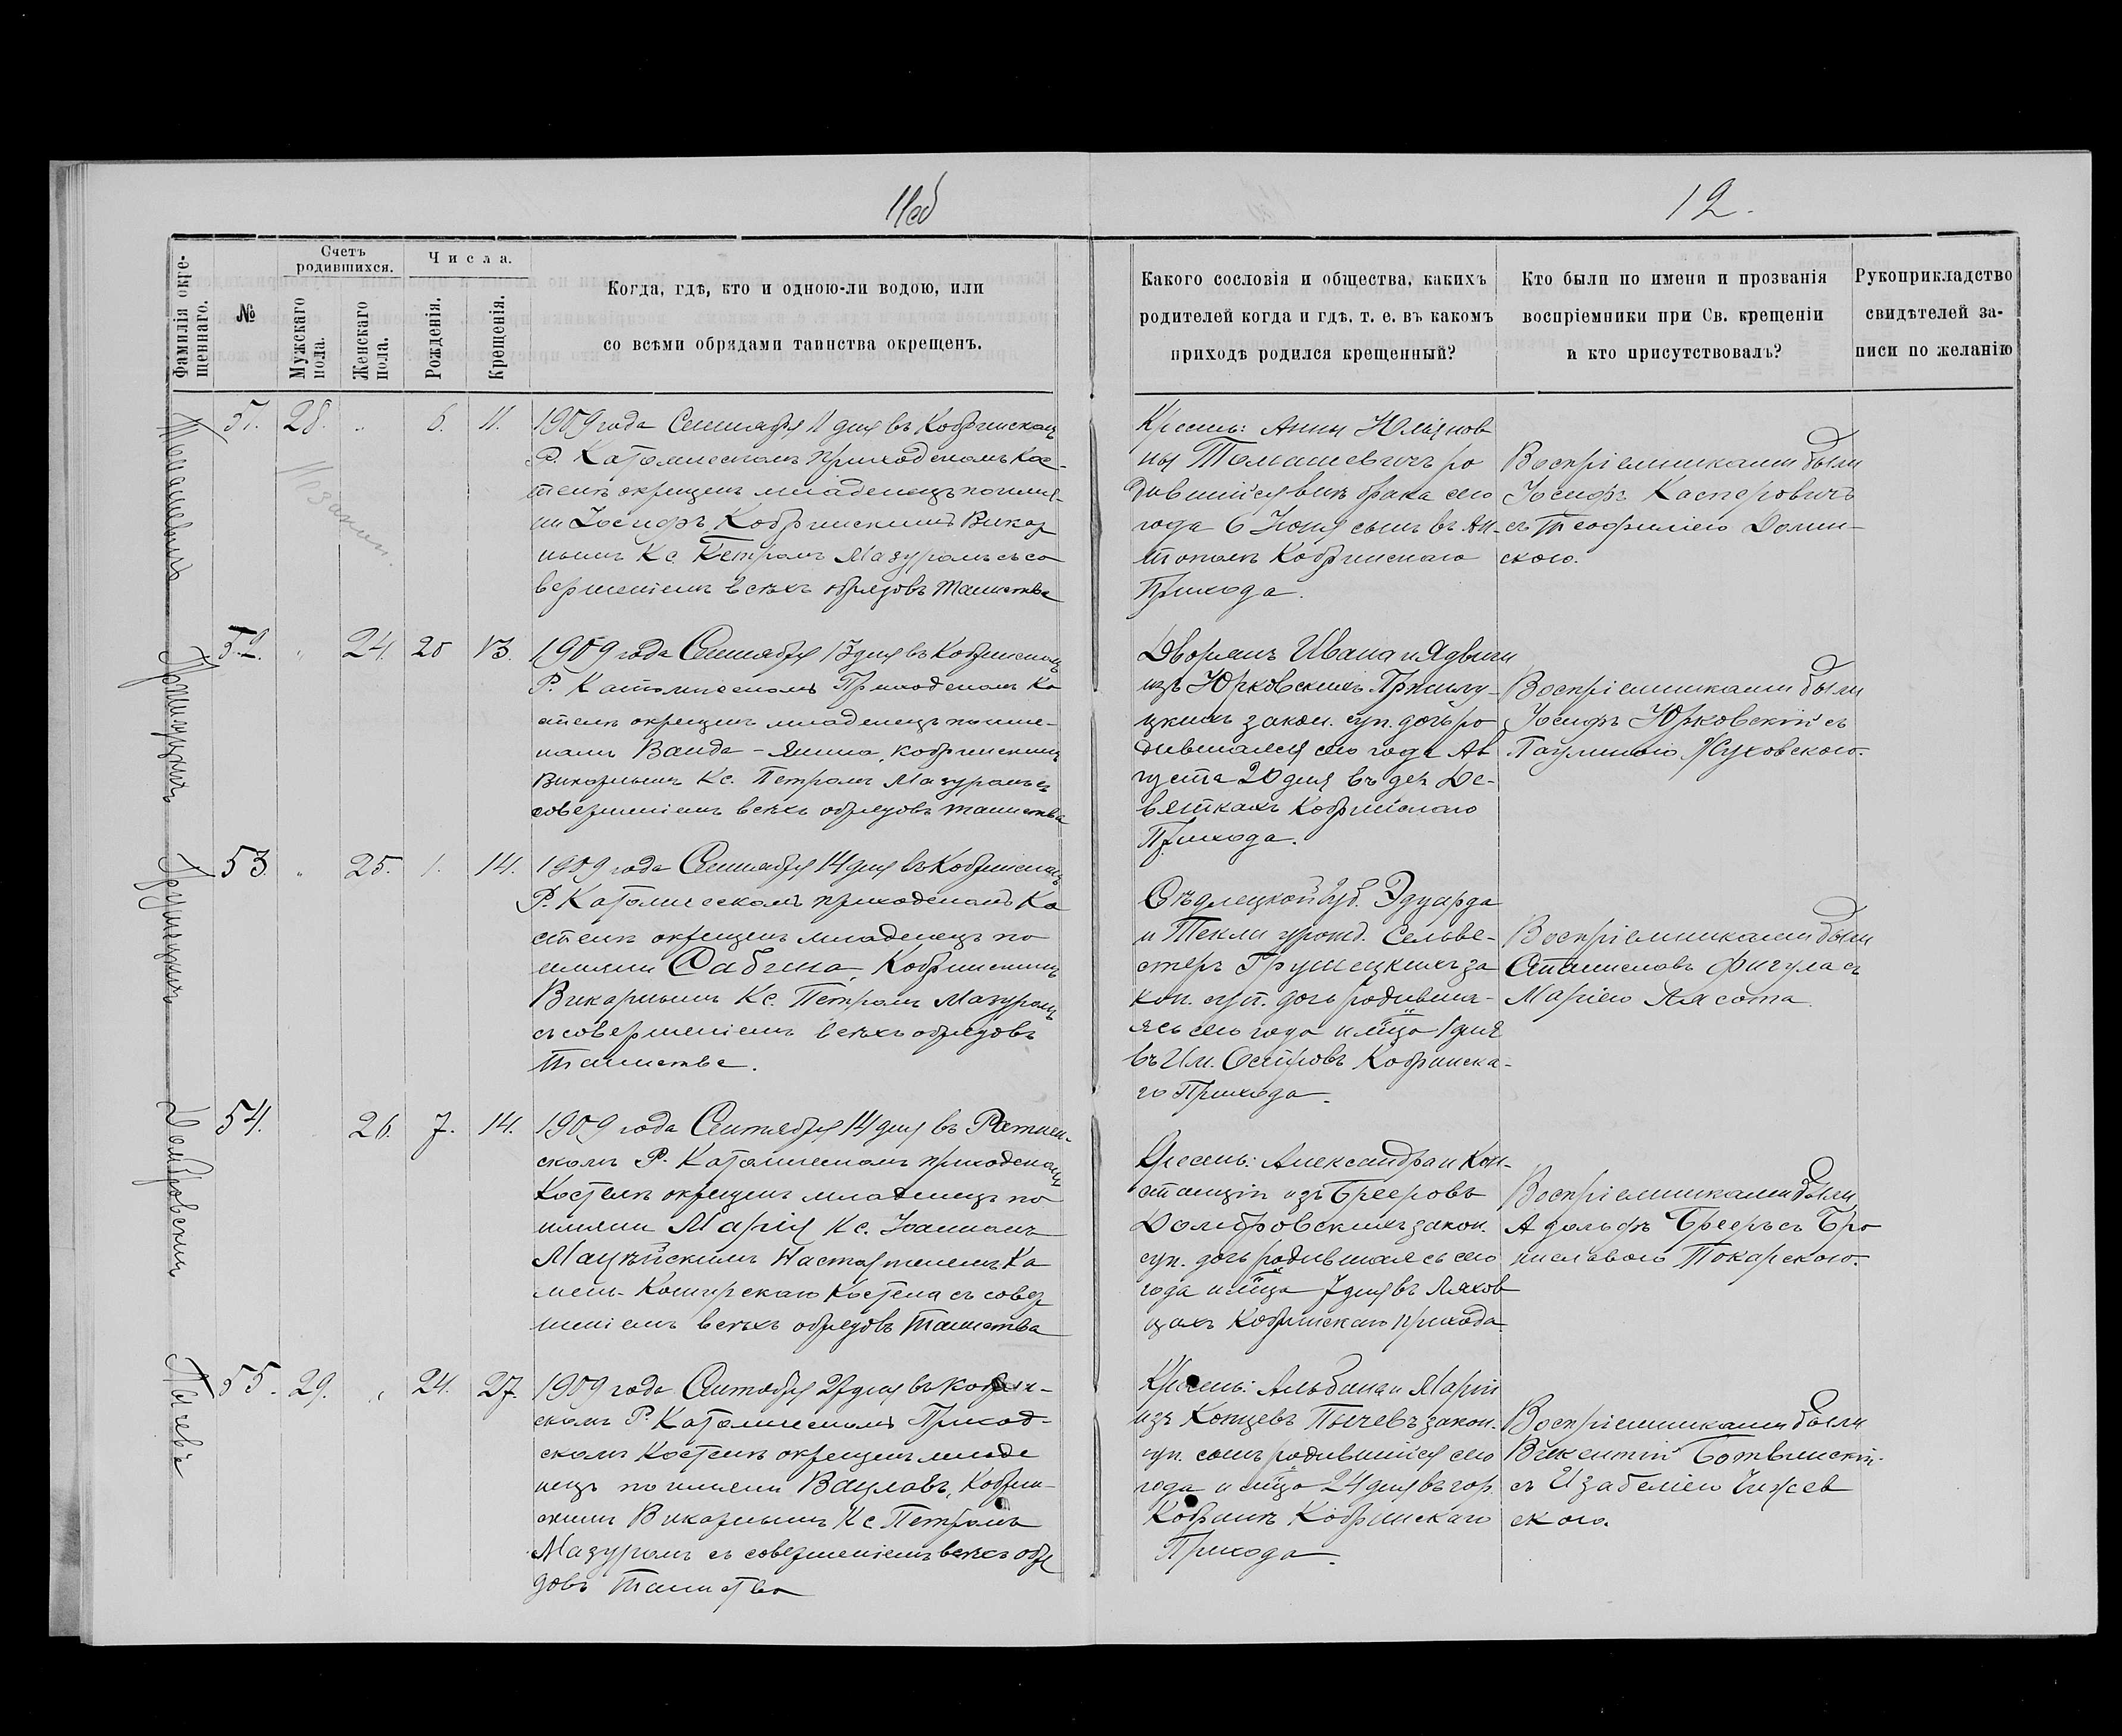 11об
12.
Фамилія окре-
щеннаго.
№
Счетъ
родившихся.
Мужскаго
пола.
Женскаго
пола.
Числа.
Рожденія.
Крещенія.
Когда, гдѣ, кто и одною-ли водою, или
со всѣми обрядами таинства окрещенъ.
Какого сословія и общества, какихъ
родителей когда и гдѣ, т. е. въ какомъ
приходѣ родился крещенный?
Кто были по имени и прозванія
воспріемники при Св. крещеніи
и кто присутствовалъ?
Рукоприкладство
свидѣтелей за-
писи по желанію
Томашевичъ
51. 28. " 6. 11.
1909 года Сентября 11 дня въ Кобринскомъ
Р. Католическомъ приходскомъ Кос-
телѣ окрещенъ младенецъ по име-
ни Іосифъ Кобринскимъ Викар
нымъ Кс. Петромъ Мазуромъ съ со
вершеніемъ всѣхъ обрядовъ таинства
Крестъ: Анны Юліянов
ны Томашевичъ ро
дившійся внѣ брака сего
года 6 Іюня сынъ въ Ан-
тополѣ Кобринскаго
Прихода.
Воспріемниками были
Іосифъ Касперовичъ
съ Теофиліею Долин-
скою.
52. " 24. 20 13.
1909 года Сентября 13 дня въ Кобринскомъ
Р. Католическомъ Приходскомъ Ко
стелѣ окрещенъ младенецъ по име-
намъ Ванда-Янина, Кобринскимъ
Викарнымъ Кс. Петромъ Мазуромъ съ
совершеніемъ всѣхъ обрядовъ таинства
Дворянъ Ивана и Ядвиги
изъ Юрковскихъ
цкихъ закон. суп. дочь ро
дившаяся сего года Ав
густа 20 дня въ дер. Де-
вяткахъ Кобринскаго
Прихода.
Воспріемниками были
Іосифъ Юрковскій съ
Паулиною Жуховскою.
Грушецкихъ
53. " 25. 1. 14.
1909 года Сентября 14 дня въ Кобринскомъ
Р. Католическомъ приходскомъ Ко
стелѣ окрещенъ младенецъ по
имени Сабина, Кобринскимъ
Викарнымъ Кс. Петромъ Мазуромъ
съ совершеніемъ всѣхъ обрядовъ
таинства.
Сѣдлецкой губ. Эдуарда
и Текли урожд. Сельве-
стеръ Грушецкихъ за
кон. суп. дочь родивша-
яся сего года и мѣца 1 дня
въ Им. Островѣ Кобринска-
го Прихода.
Воспріемниками были
Станиславъ Фигула съ
Маріею Лясота.
Домбровскихъ
54. 26. 7. 14.
1909 года Сентября 14 дня въ Ратнен-
скомъ Р. Католическомъ приходскомъ
Костелѣ окрещенъ младенецъ по
имени Марія Кс. Іоанномъ
Мацѣйскимъ Настоятелемъ Ка
мень-Коширскаго Костела съ совер
шеніемъ всѣхъ обрядовъ Таинства
Крестъ: Александра и Кон-
станціи изъ Брееровъ
Домбровскихъ закон.
суп. дочь родившаяся сего
года и мѣца 7 дня въ Ляхов
цахъ Кобринскаго прихода.
Воспріемниками были
Адольфъ Брееръ съ Бро
ниславою Токарскою.
Пычевъ
55. 29. " 24. 27.
1909 года Сентября 27 дня въ Кобрин-
скомъ Р. Католическомъ Приход-
скомъ Костелѣ окрещенъ младе
нецъ по имени Вацлавъ, Кобрин-
скимъ Викарнымъ Кс. Петромъ
Мазуромъ съ совершеніемъ всѣхъ обря
довъ Таинства
Крестъ: Альбина и Маріи
изъ Концевъ Пычевъ закон.
суп. сынъ родившійся сего
года и мѣца 24 дня въ гор.
Кобринѣ Кобринскаго
Прихода.
Воспріемниками были
Викентій Ботвинскій
съ Изабеліею Чижев
скою.